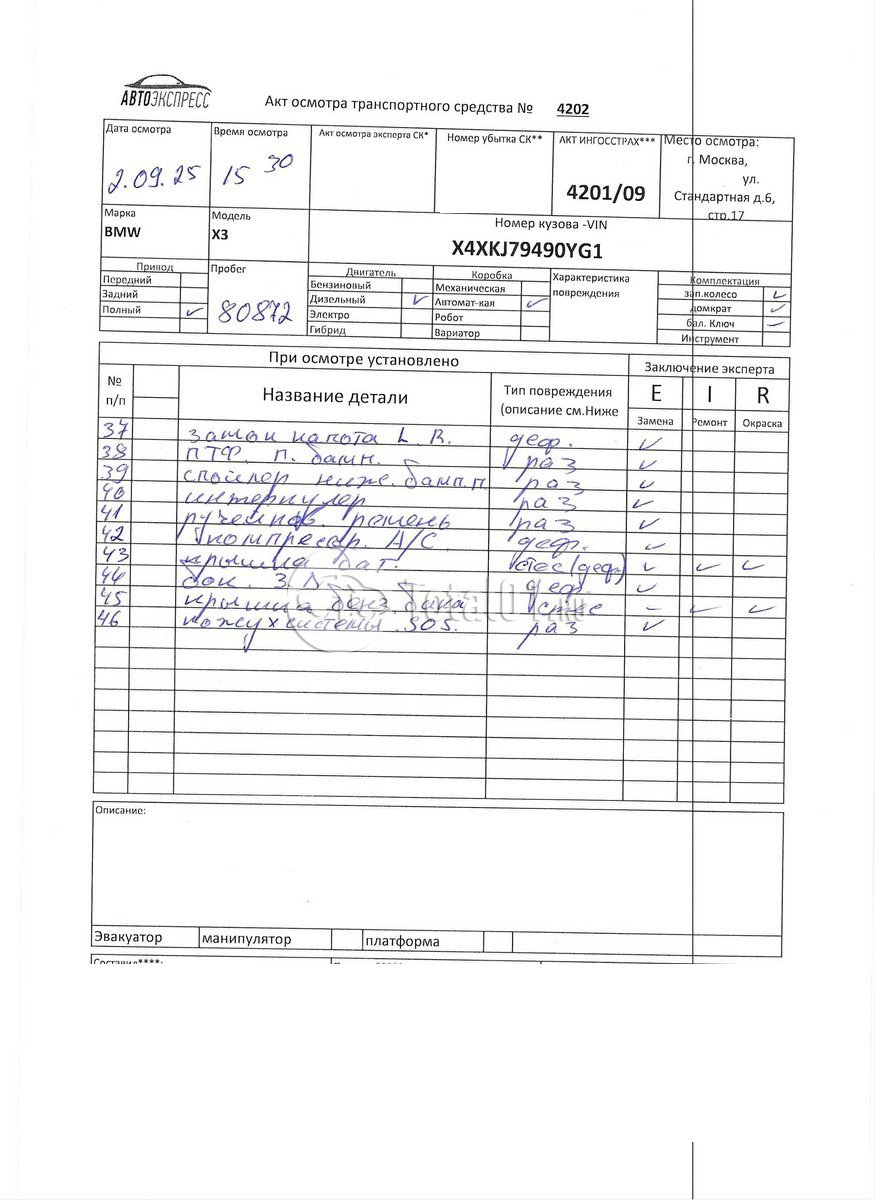 АВТОЭКСПРЕСС
Акт осмотра транспортного средства № 4202
Дата осмотра
2.09.25
Время осмотра
15 30
Акт осмотра эксперта СК*
Номер убытка СК**
АКТ ИНГОССТРАХ***
4201/09
Место осмотра:
г. Москва,
ул.
Стандартная д.6,
стр.17
Марка
BMW
Модель
X3
Номер кузова -VIN
X4XKJ79490YG1
Привод
Передний
Задний
Полный ✓
Пробег
80872
Двигатель
Бензиновый
Дизельный ✓
Электро
Гибрид
Коробка
Механическая
Автомат-кая ✓
Робот
Вариатор
Характеристика
повреждения
Комплектация
зап.колесо ✓
домкрат ✓
бал. Ключ –
Инструмент
При осмотре установлено
Заключение эксперта
№
п/п
Название детали
Тип повреждения
(описание см.Ниже
E I R
Замена Ремонт Окраска
37 замок капота L R. деф. ✓
38 ПТФ. п. бамп. раз ✓
39 спойлер ниже. бамп.п раз ✓
40 интеркулер раз ✓
41 ручейков. ремень раз ✓
42 компрессор. A/C. деф. ✓
43 крышка бат. стес(деф) ✓ ✓ ✓
44 бок. З Л деф ✓
45 крышка бенз. бака стес – ✓ ✓
46 кожух системы SOS. раз ✓
Описание:
Эвакуатор манипулятор платформа
Составил****: